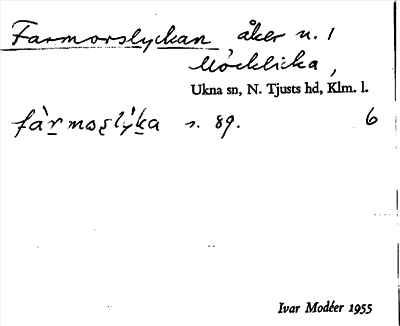 Farmorslyckan åker n. 1
Möcklicka,
Ukna sn, N. Tjusts hd, Klm. l.
fàrmoşlýka s. 89. 6
Ivar Modéer 1955